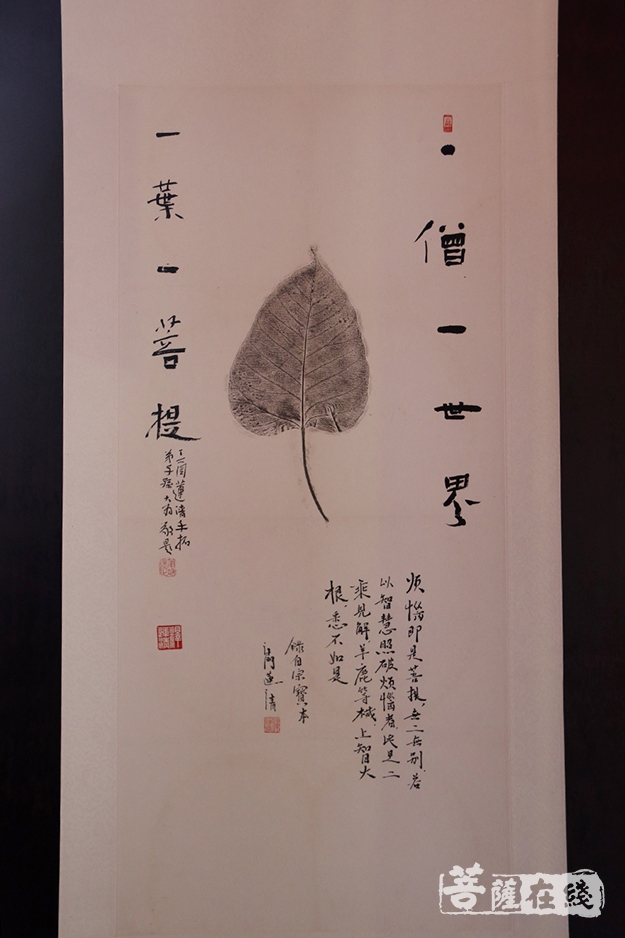 一僧一世界
一葉一菩提
煩惱即是菩提,无二无别,若
以智慧照破煩惱者,此是二
乘見解,羊鹿等機,上智大
根,悉不如是
錄自宗寶本
蓮清手拓
弟子
菩薩在綫